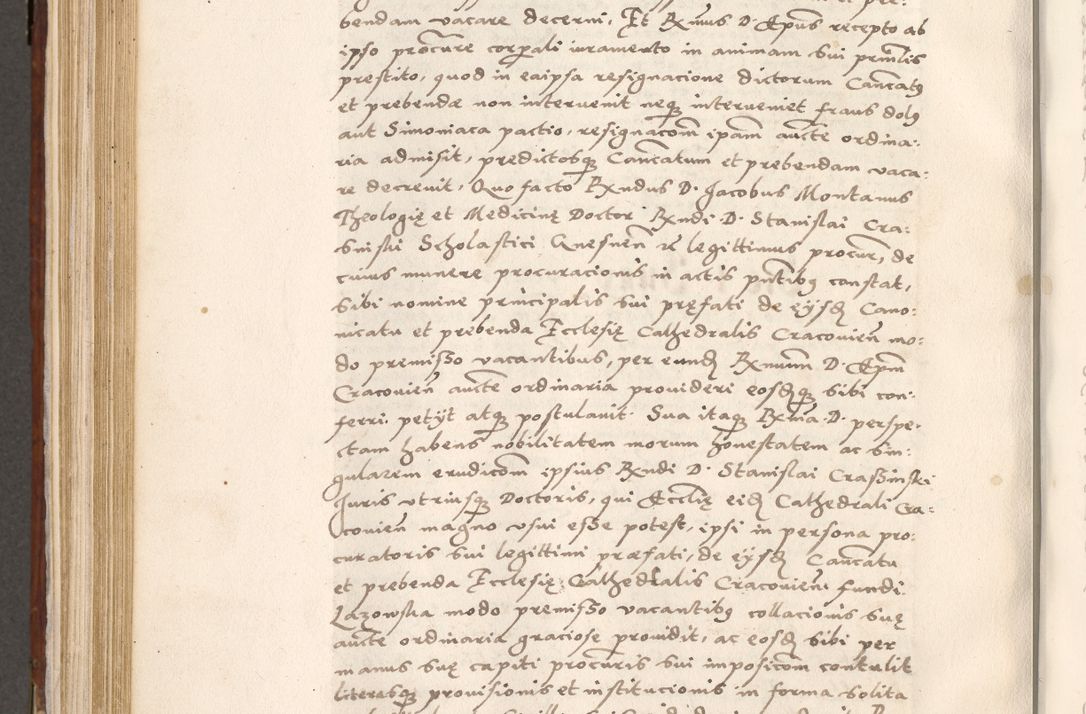 bendam vacare decerni, Et Rx̃mus D. Ep̃us recepto ab
ipso procũre corp̃ali iuramento in animam sui prin̄lis
prestito, quod in eaipsa resignacione dictorum Can̄catq
et prebendæ non intervenit neq̧ interveniet fraus dolq
aut Simoniaca pactio, resignac̃om ip̄am auc̃te ordina:
ria admisit, predictosq̧ Can̄catum et prebendam vaca:
re decrevit, Quo facto Rx̃ndus D. Jacobus Montanus
Theologię et Medicinę Doctor Rx̃ndi D. Stanislai Cra:
sinski Scholastici Gnesnen̄ legittimus procur̃, de
cuius munere procuracionis in actis pn̄tibq constat,
sibi nomine principalis sui pręfati de eysd̃ Cano:
nicatu et prebenda Ecclesię Cathedralis Cracovien̄ mo:
do premisso vacantibus, per eund̃ Rx̃mum D. Ep̄m
Cracovien̄ auc̃te ordinaria provideri eosd̃q̧ sibi con:
ferri petyt atq̧ postulavit. Sua itaq̧ Rx̃ma D. perspe:
ctam habens nobilitatem morum honestatem ac sin:
gularem erudic̃om ipsius Rx̃ndi D. Stanislai Crassinski
Juris utriusq̧ Doctoris, qui Eccl̃ię eid̃ Cathedrali Cra:
covien̄ magno usui esse potest, ipsi in persona pro:
curatoris sui legittimi præfati, de eysd̃ Can̄catu
et prebenda Ecclesię Cathedralis Cracovien̄ fundi
Lazowska modo premisso vacantibq collacionis suę
auc̃te ordinaria graciose providit, ac eosd̃ sibi per
manus suę capiti procur̃is sui imposic̃om contulit
literasq̧ provisionis et institucionis in forma solita